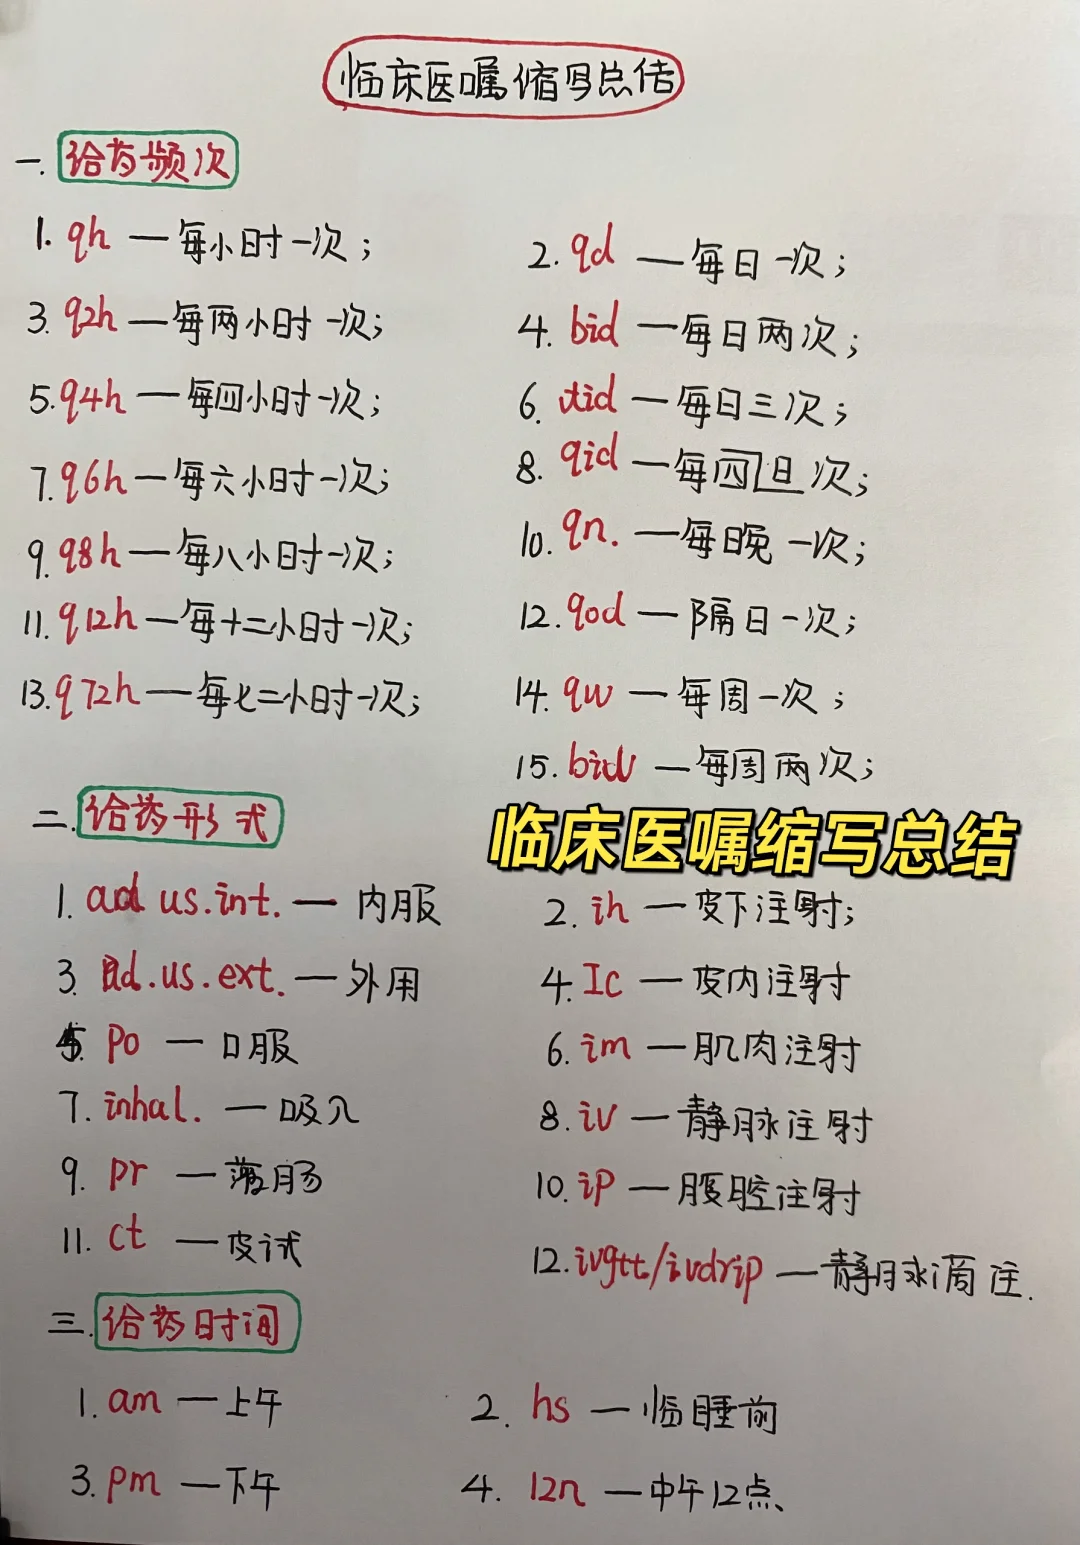 临床医嘱缩写总结
一. 给药频次
1. qh — 每小时一次；
2. qd — 每日一次；
3. q2h — 每两小时一次；
4. bid — 每日两次；
5. q4h — 每四小时一次；
6. tid — 每日三次；
7. q6h — 每六小时一次；
8. qid — 每四日次；
9. q8h — 每八小时一次；
10. qn. — 每晚一次；
11. q12h — 每十二小时一次；
12. qod — 隔日一次；
13. q72h — 每七二小时一次；
14. qw — 每周一次；
15. biw — 每周两次；
二. 给药形式
临床医嘱缩写总结
1. ad us.int. — 内服
2. ih — 皮下注射；
3. ad.us.ext. — 外用
4. Ic — 皮内注射
5. po — 口服
6. im — 肌肉注射
7. inhal. — 吸入
8. iv — 静脉注射
9. pr — 灌肠
10. ip — 腹腔注射
11. ct — 皮试
12. ivgtt/ivdrip — 静脉滴注.
三. 给药时间
1. am — 上午
2. hs — 临睡前
3. pm — 下午
4. 12n — 中午12点、